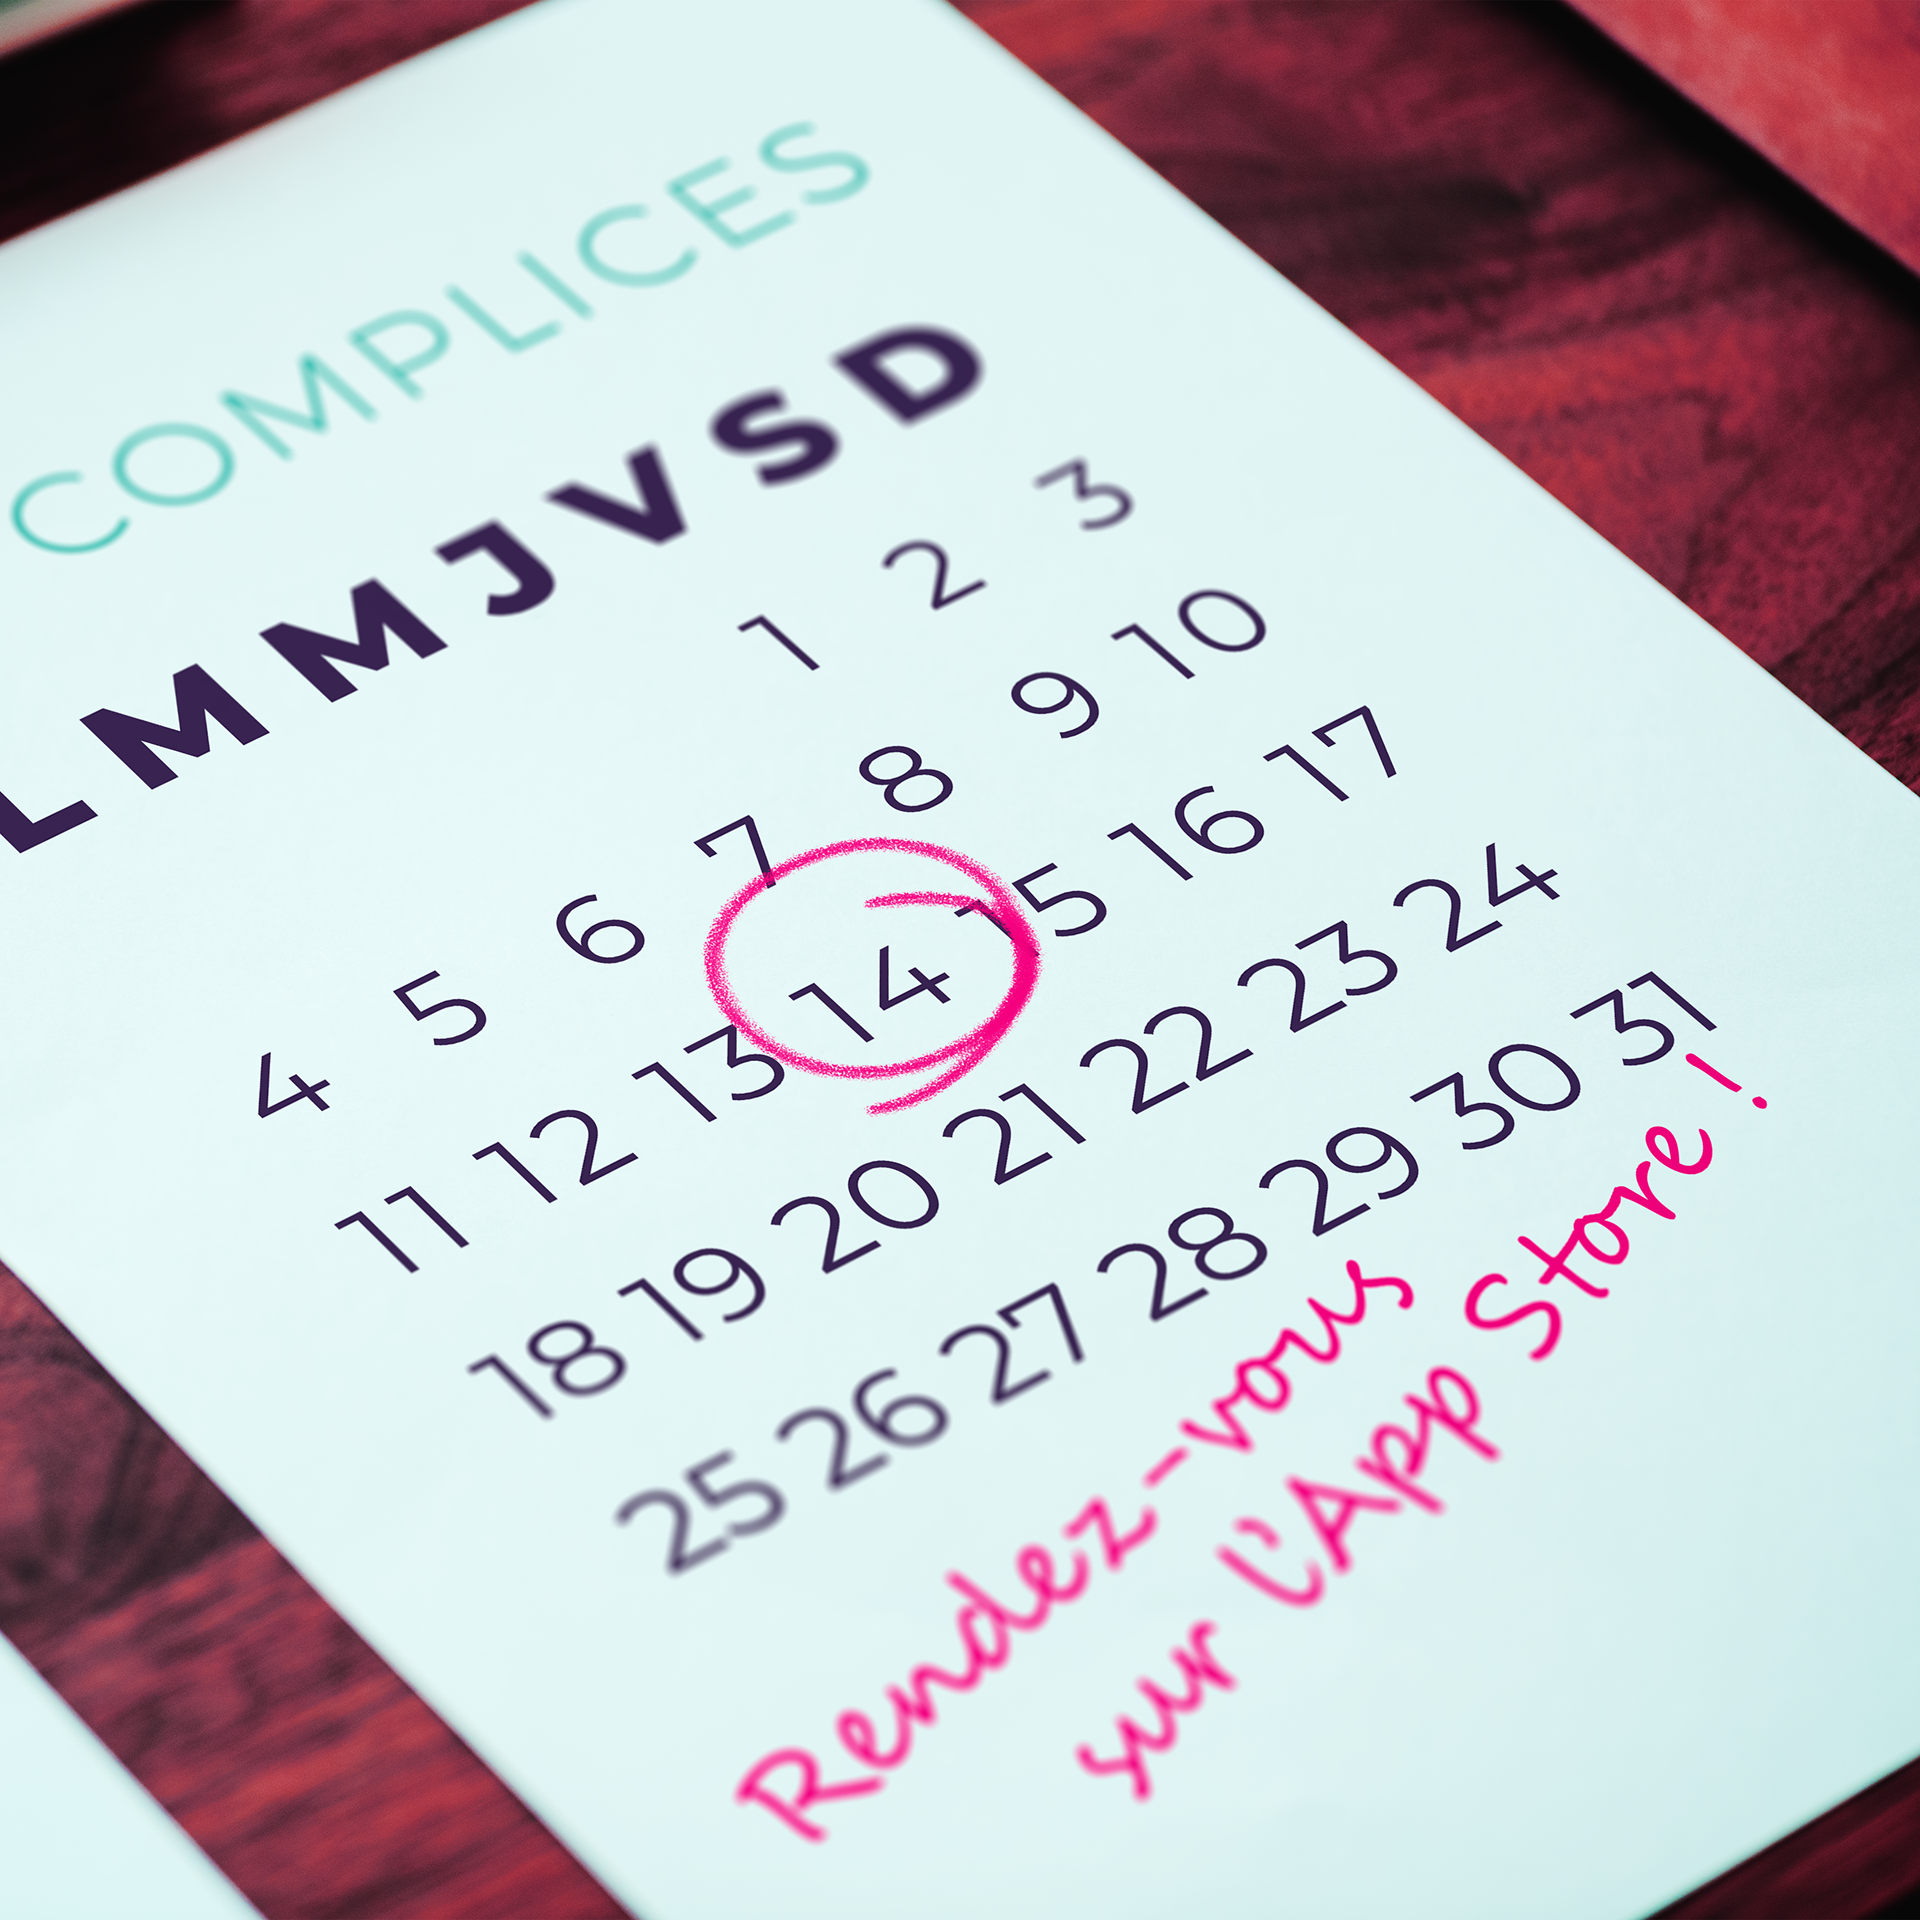 COMPLICES
L M M J V S D
1 2 3
4 5 6 7 8 9 10
11 12 13 14 15 16 17
18 19 20 21 22 23 24
25 26 27 28 29 30 31
Rendez-vous
sur l'App Store !